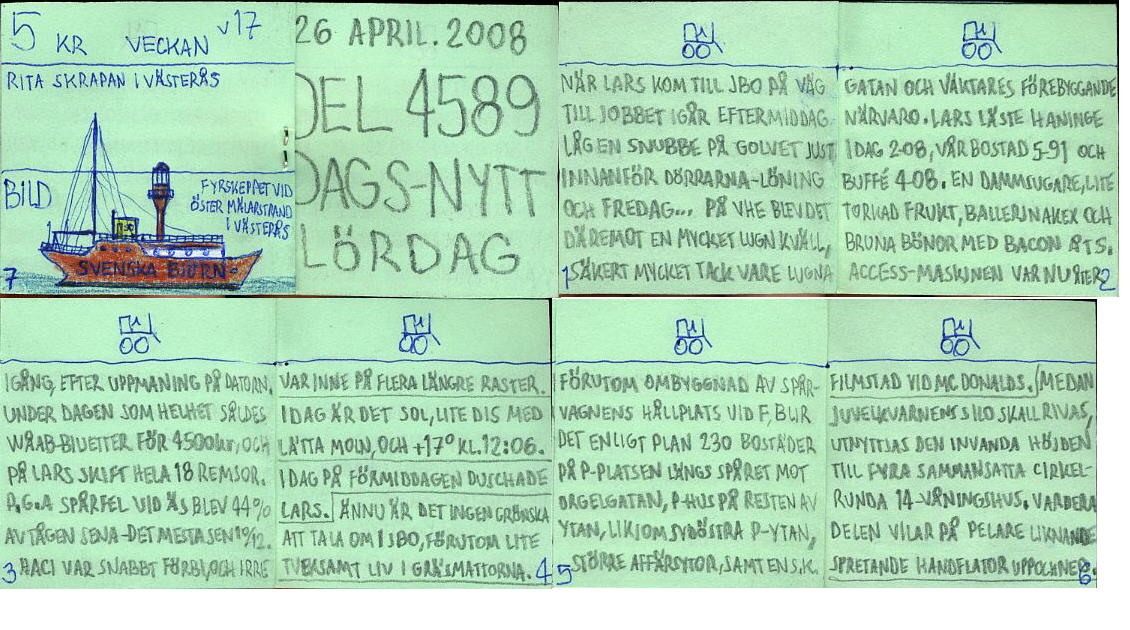 5 KR VECKAN v17
RITA SKRAPAN I VÄSTERÅS
BILD
FYRSKEPPET VID
ÖSTER MÄLARSTRAND
I VÄSTERÅS
SVENSKA BJÖRN
7
26 APRIL. 2008
DEL 4589
DAGS-NYTT
LÖRDAG
NÄR LARS KOM TILL JBO PÅ VÄG
TILL JOBBET IGÅR EFTERMIDDAG
LÅG EN SNUBBE PÅ GOLVET JUST
INNANFÖR DÖRRARNA-LÖNING
OCH FREDAG... PÅ VHE BLEV DET
DÄREMOT EN MYCKET LUGN KVÄLL,
1 SÄKERT MYCKET TACK VARE LUGNA
GATAN OCH VÄKTARES FÖREBYGGANDE
NÄRVARO. LARS LÄSTE HANINGE
IDAG 2-08, VÅR BOSTAD 5-91 OCH
BUFFÉ 4-08. EN DAMMSUGARE, LITE
TORKAD FRUKT, BALLERINAKEX OCH
BRUNA BÖNOR MED BACON ÄTS.
ACCESS-MASKINEN VAR NU ÅTER 2
IGÅNG, EFTER UPPMANING PÅ DATORN.
UNDER DAGEN SOM HELHET SÅLDES
WÅAB-BILJETTER FÖR 4500kr, OCH
PÅ LARS SKIFT HELA 18 REMSOR.
P.G.A SPÅRFEL VID ÄS BLEV 44%
AV TÅGEN SENA-DET MESTA SEN 10/12.
3 HACI VAR SNABBT FÖRBI, OCH IRRE
VAR INNE PÅ FLERA LÄNGRE RASTER.
IDAG ÄR DET SOL, LITE DIS MED
LÄTTA MOLN, OCH +17° KL. 12:06.
IDAG PÅ FÖRMIDDAGEN DUSCHADE
LARS. ÄNNU ÄR DET INGEN GRÖNSKA
ATT TALA OM I JBO, FÖRUTOM LITE
TVEKSAMT LIV I GRÄSMATTORNA. 4
FÖRUTOM OMBYGGNAD AV SPÅR-
VAGNENS HÅLLPLATS VID F, BLIR
DET ENLIGT PLAN 230 BOSTÄDER
PÅ P-PLATSEN LÄNGS SPÅRET MOT
ORGELGATAN, P-HUS PÅ RESTEN AV
YTAN, LIKSOM SYDÖSTRA P-YTAN,
5 STÖRRE AFFÄRSYTOR, SAMT EN S.K.
FILMSTAD VID MC DONALDS. (MEDAN
JUVELKVARNENS SILO SKALL RIVAS,
UTNYTTJAS DEN INVANDA HÖJDEN
TILL FYRA SAMMANSATTA CIRKEL-
RUNDA 14-VÅNINGSHUS. VARDERA
DELEN VILAR PÅ PELARE LIKNANDE
SPRETANDE HANDFLATOR UPPOCHNER. 6